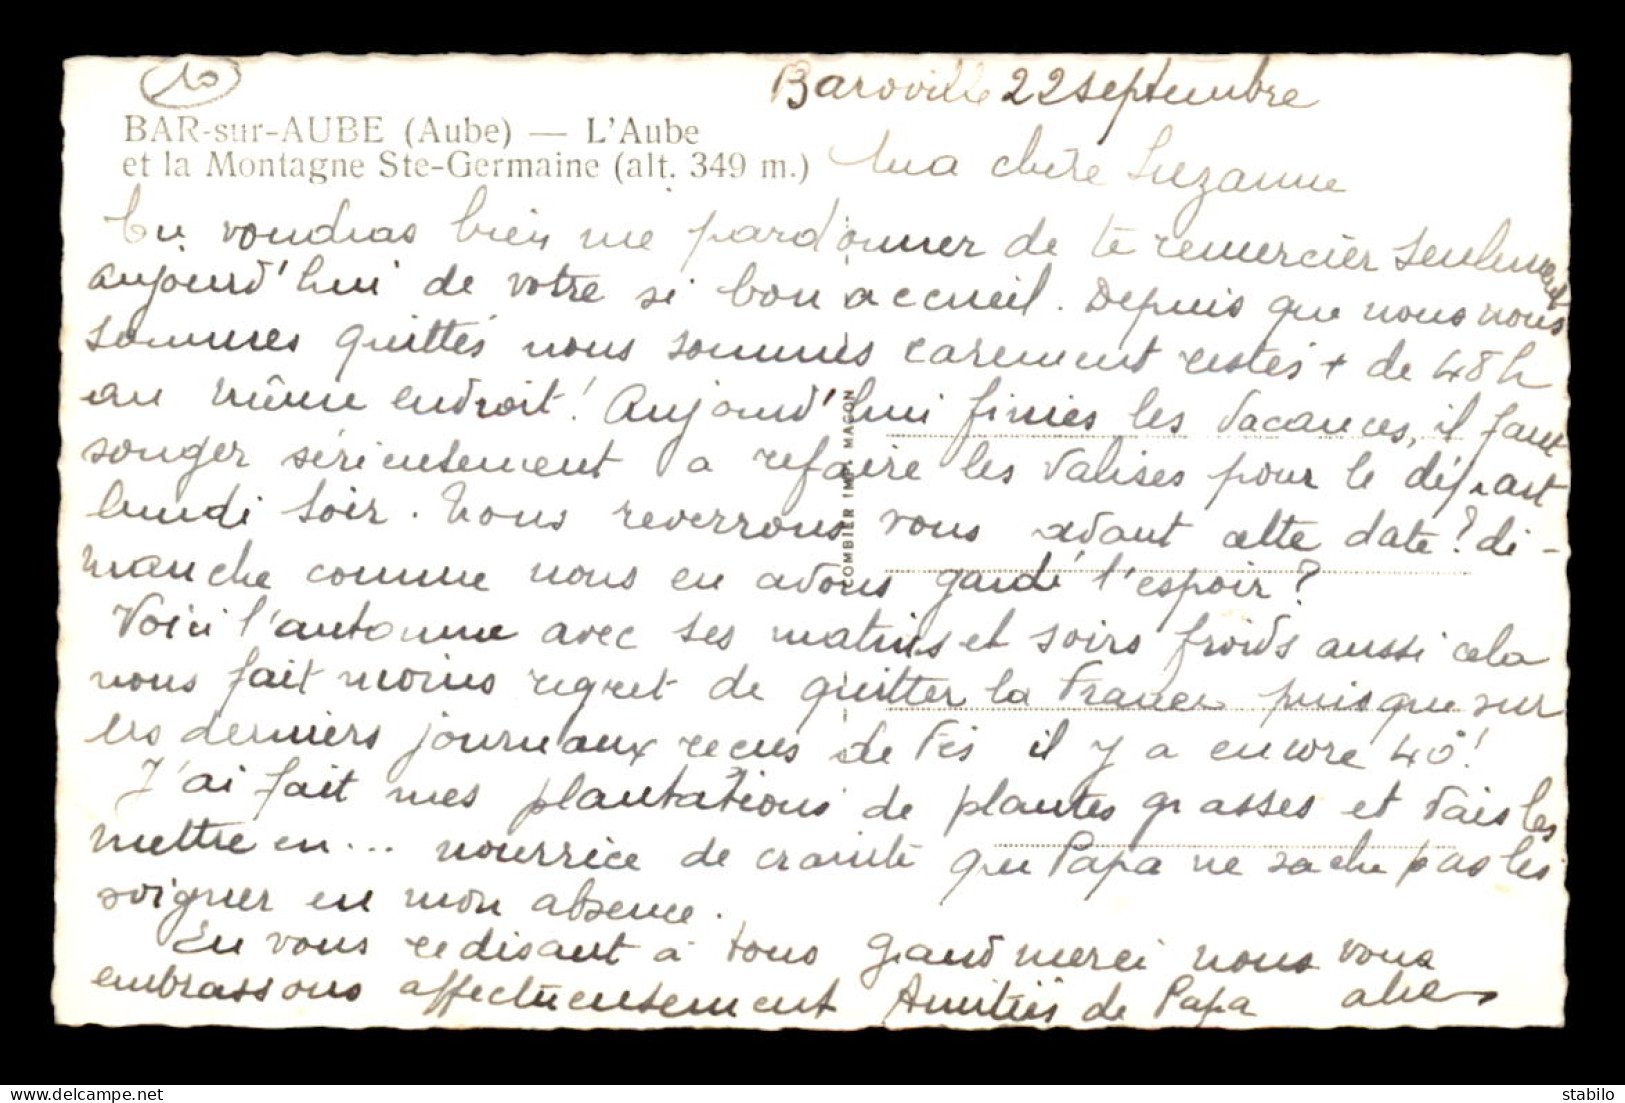 10
Baroville 22 septembre
BAR-sur-AUBE (Aube) — L'Aube
et la Montagne Ste-Germaine (alt. 349 m.)
Ma chère Suzanne
Tu voudras bien me pardonner de te remercier seulement
aujourd'hui de votre si bon accueil. Depuis que nous nous
sommes quittés nous sommes carement restés + de 48 h
au même endroit! Aujourd'hui finies les vacances, il faut
songer sérieusement a refaire les valises pour le départ
lundi soir. Nous reverrons vous avant cette date? di-
manche comme nous en avons gardé l'espoir?
Voici l'automne avec ses matins et soirs froids aussi cela
nous fait moins regret de quitter la France puisque sur
les derniers journaux recus de Fès il y a encore 40°!
J'ai fait mes plantations de plantes grasses et vais les
mettre en... nourrice de crainte que Papa ne sache pas les
soigner en mon absence.
En vous redisant à tous grand merci nous vous
embrassons affectueusement Amitiés de Papa
COMBIER IMP. MACON
stabilo - delcampe.net